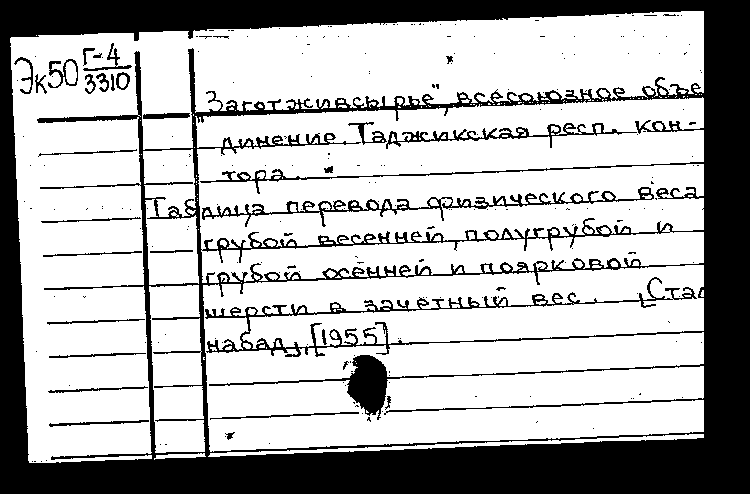 Эк50 Г-4
3310
"Заготживсырье", всесоюзное объе
динение. Таджикская респ. кон-
тора.
Таблица перевода физического веса
грубой весенней, полугрубой и
грубой осенней и поярковой
шерсти в зачетный вес. [Стал
набад], [1955].